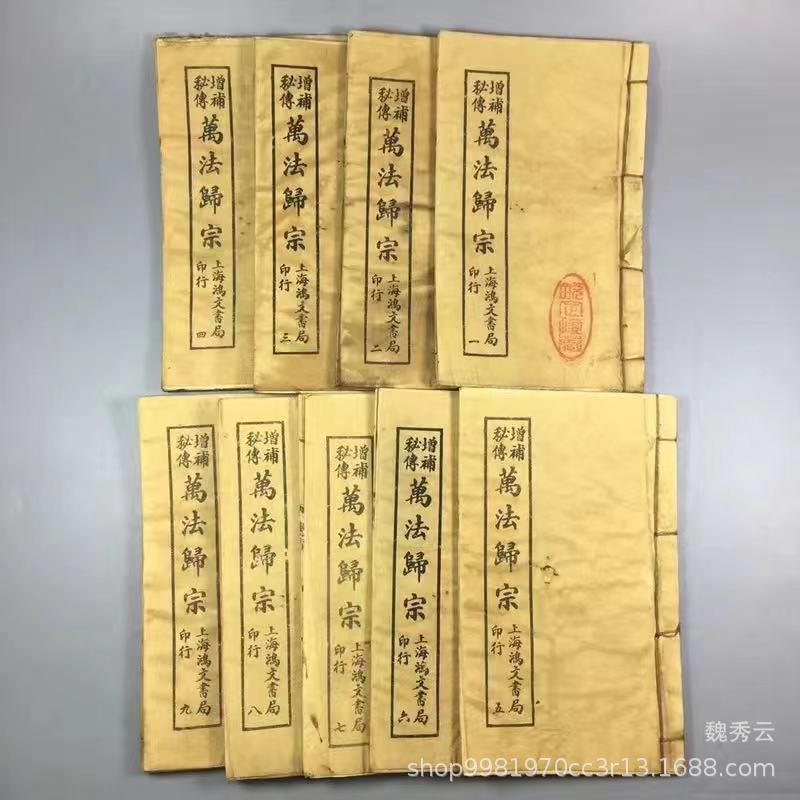 增補
秘傳
萬法歸宗
上海鴻文書局
印行
一
增補
秘傳
萬法歸宗
上海鴻文書局
印行
二
增補
秘傳
萬法歸宗
上海鴻文書局
印行
三
增補
秘傳
萬法歸宗
上海鴻文書局
印行
四
增補
秘傳
萬法歸宗
上海鴻文書局
印行
五
增補
秘傳
萬法歸宗
上海鴻文書局
印行
六
增補
秘傳
萬法歸宗
上海鴻文書局
印行
七
增補
秘傳
萬法歸宗
上海鴻文書局
印行
八
增補
秘傳
萬法歸宗
上海鴻文書局
印行
九
魏秀云
shop9981970cc3r13.1688.com